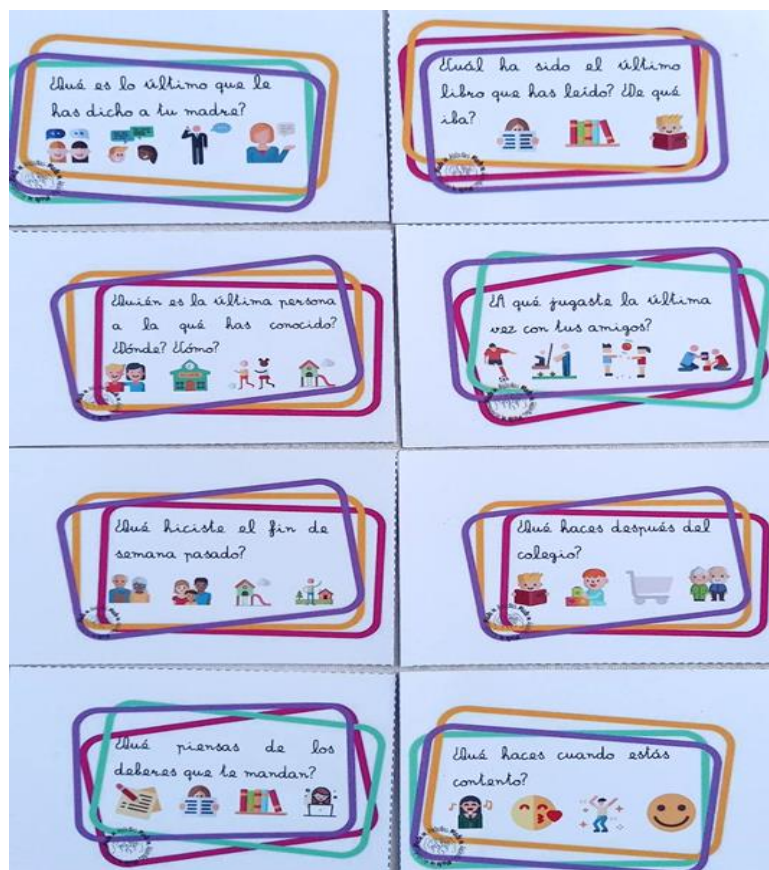 ¿Qué es lo último que le
has dicho a tu madre?
¿Cuál ha sido el último
libro que has leído? ¿De qué
iba?
¿Quién es la última persona
a la qué has conocido?
¿Dónde? ¿Cómo?
¿A qué jugaste la última
vez con tus amigos?
¿Qué hiciste el fin de
semana pasado?
¿Qué haces después del
colegio?
¿Qué piensas de los
deberes que te mandan?
¿Qué haces cuando estás
contento?